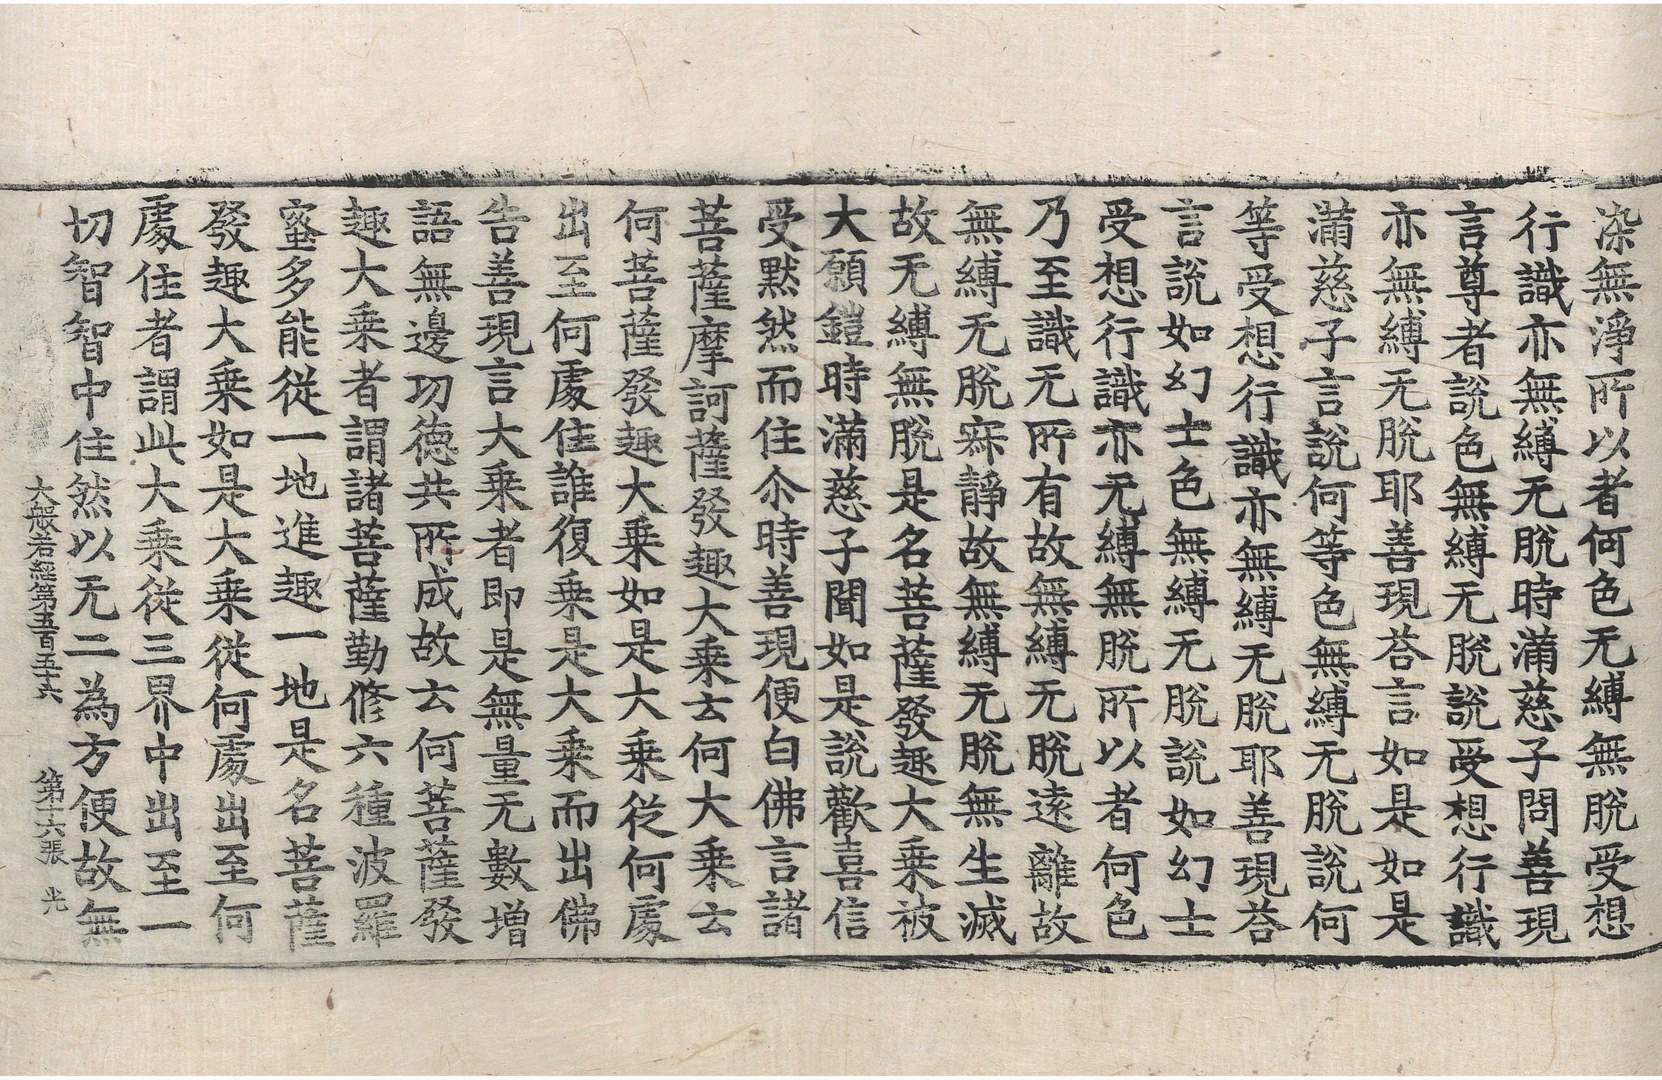 染無淨所以者何色无縛無脫受想
行識亦無縛无脫時滿慈子問善現
言尊者說色無縛无脫說受想行識
亦無縛无脫耶善現荅言如是如是
滿慈子言說何等色無縛无脫說何
等受想行識亦無縛无脫耶善現荅
言說如幻士色無縛无脫說如幻士
受想行識亦无縛無脫所以者何色
乃至識无所有故無縛无脫遠離故
無縛无脫寂靜故無縛无脫無生滅
故无縛無脫是名菩薩發趣大乘被
大願鎧時滿慈子聞如是說歡喜信
受默然而住尒時善現便白佛言諸
菩薩摩訶薩發趣大乘云何大乘云
何菩薩發趣大乘如是大乘從何處
出至何處住誰復乘是大乘而出佛
告善現言大乘者即是無量无數增
語無邊功德共所成故云何菩薩發
趣大乘者謂諸菩薩勤修六種波羅
蜜多能從一地進趣一地是名菩薩
發趣大乘如是大乘從何處出至何
處住者謂此大乘從三界中出至一
切智智中住然以无二為方便故無
大般若經第五百五十六 第十六張 光